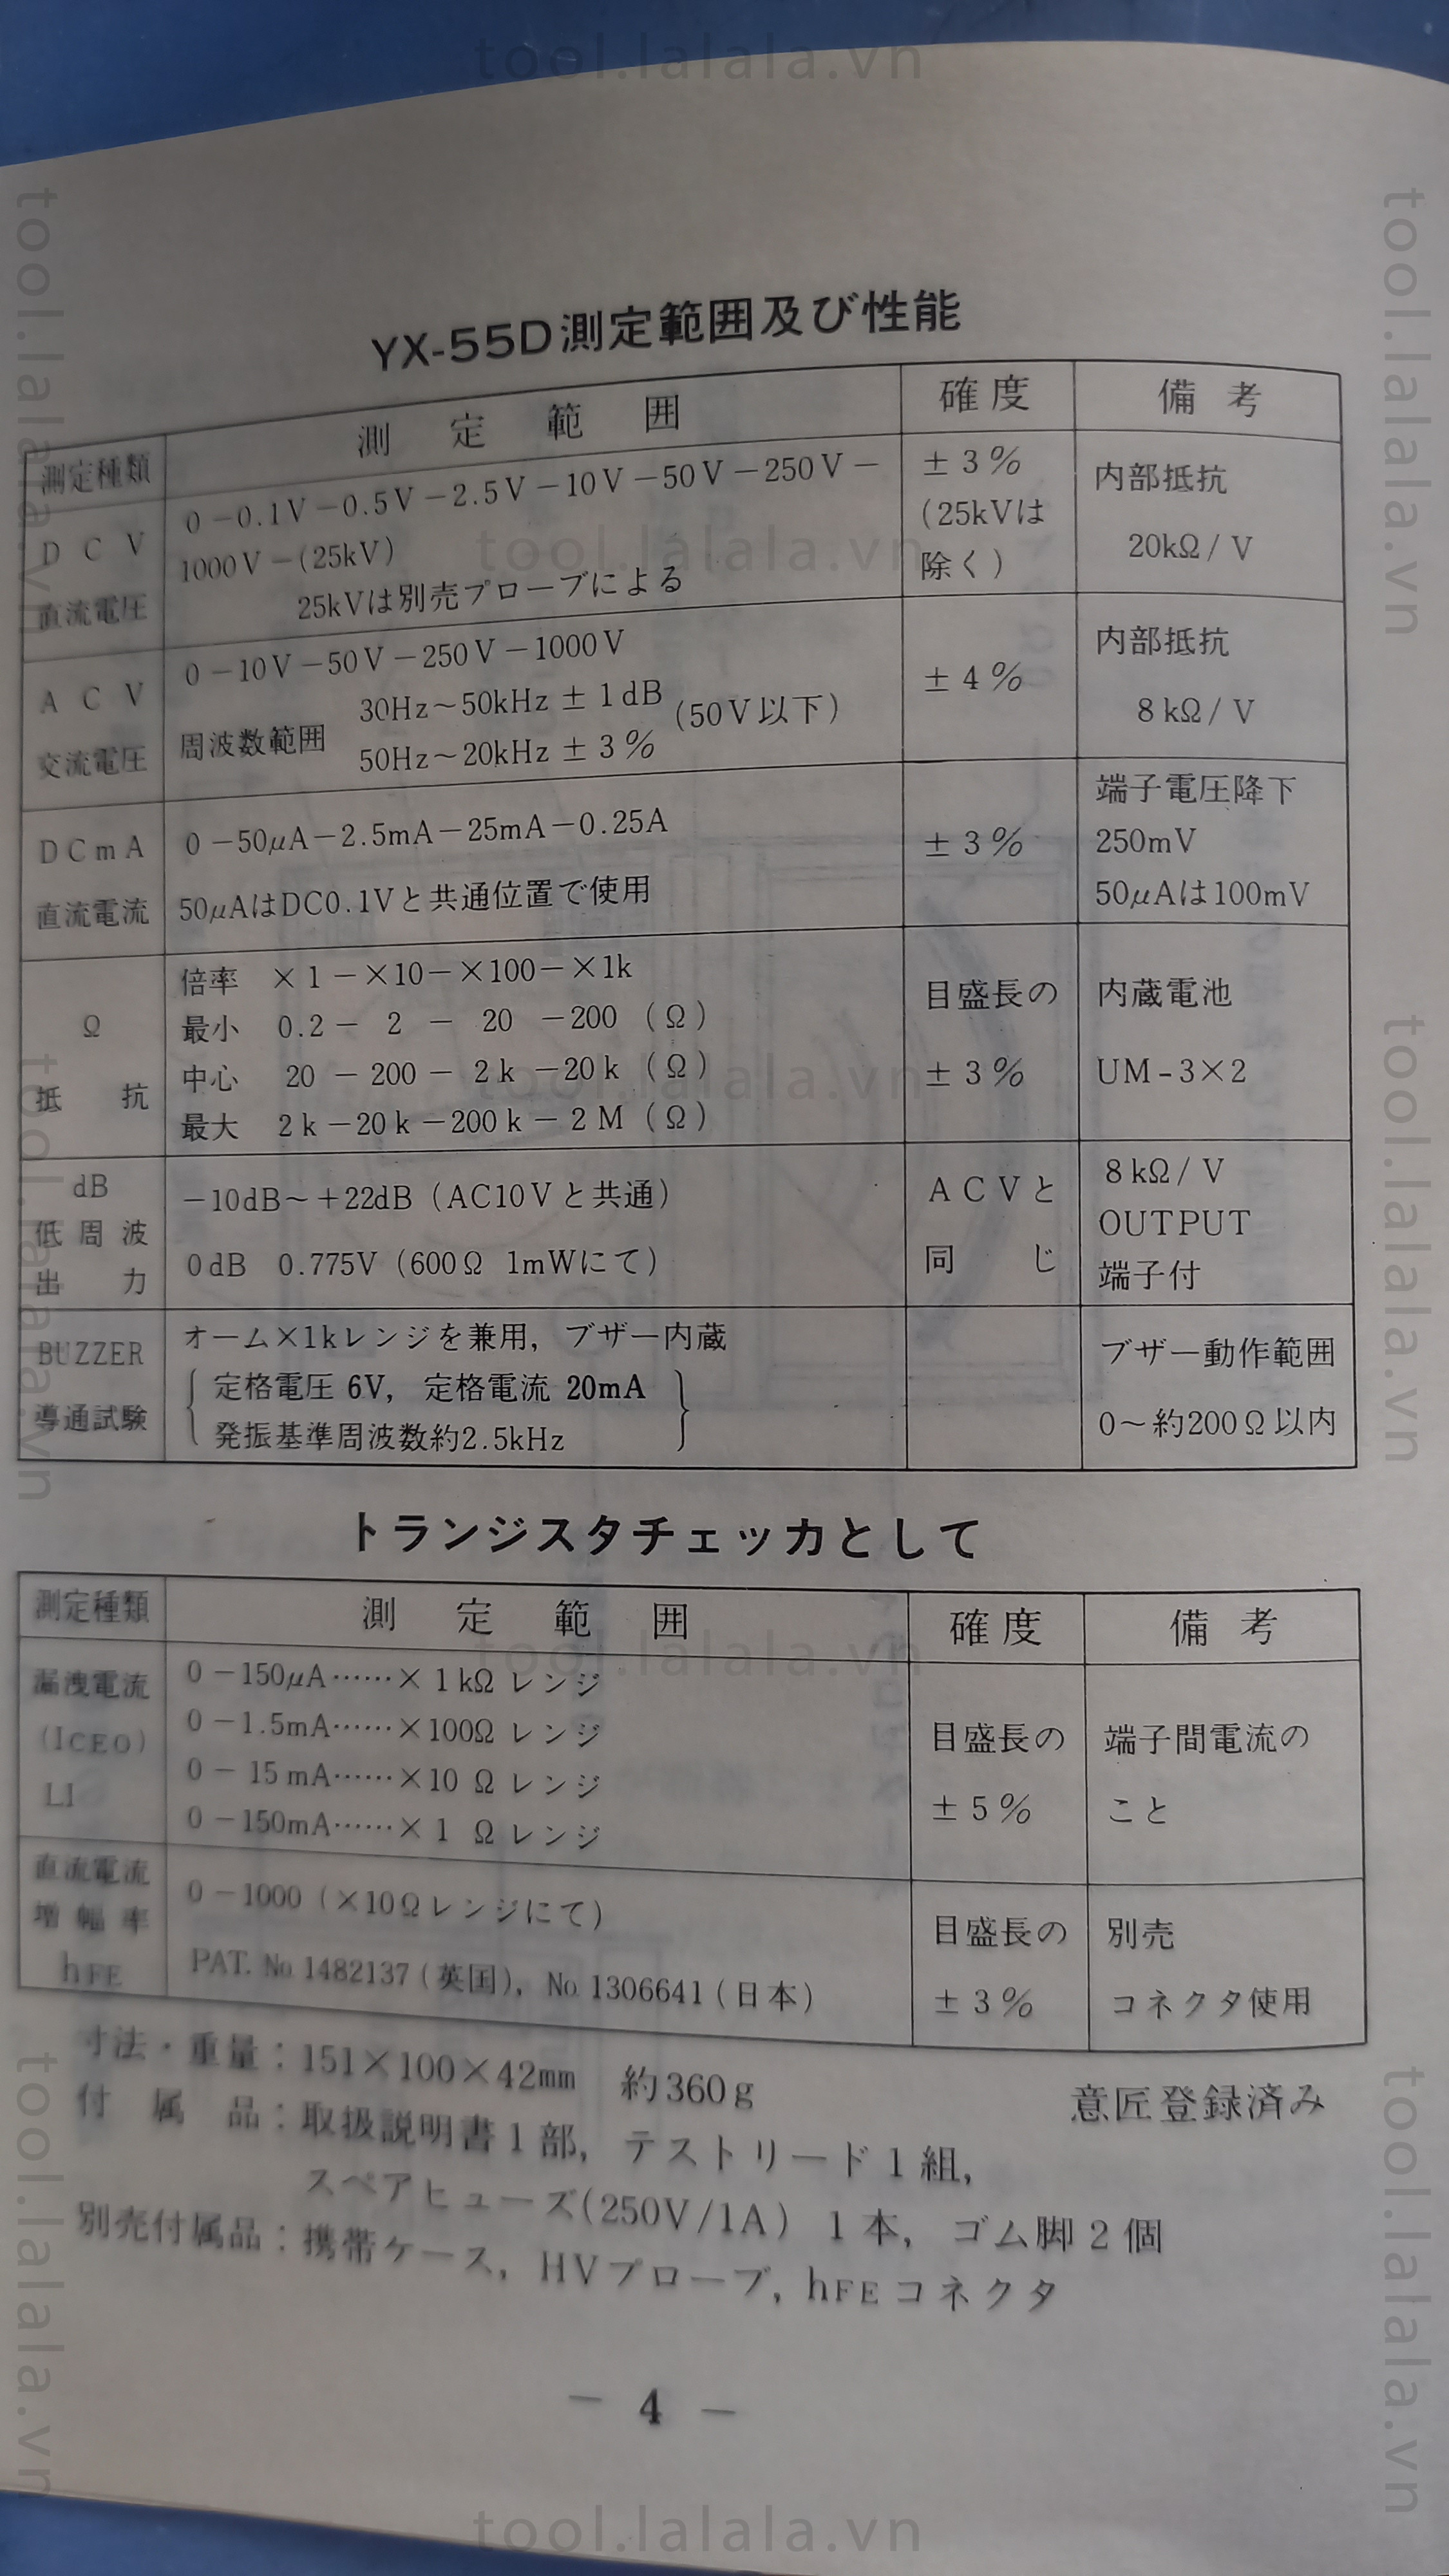 tool.lalala.vn
YX-55D測定範囲及び性能
測定種類 測定範囲 確度 備考
DCV
直流電圧
0-0.1V-0.5V-2.5V-10V-50V-250V-
1000V-(25kV)
25kVは別売プローブによる
±3%
(25kVは
除く)
内部抵抗
20kΩ/V
ACV
交流電圧
0-10V-50V-250V-1000V
周波数範囲 30Hz~50kHz ±1dB (50V以下)
50Hz~20kHz ±3%
±4%
内部抵抗
8kΩ/V
DCmA
直流電流
0-50μA-2.5mA-25mA-0.25A
50μAはDC0.1Vと共通位置で使用
±3%
端子電圧降下
250mV
50μAは100mV
Ω
抵抗
倍率 ×1-×10-×100-×1k
最小 0.2- 2 - 20 -200 (Ω)
中心 20 -200- 2k -20k (Ω)
最大 2k-20k-200k-2M (Ω)
目盛長の
±3%
内蔵電池
UM-3×2
dB
低周波
出力
-10dB~+22dB (AC10Vと共通)
0dB 0.775V (600Ω 1mWにて)
ACVと
同じ
8kΩ/V
OUTPUT
端子付
BUZZER
導通試験
オーム×1kレンジを兼用, ブザー内蔵
定格電圧 6V, 定格電流 20mA
発振基準周波数約2.5kHz
ブザー動作範囲
0~約200Ω以内
トランジスタチェッカとして
測定種類 測定範囲 確度 備考
漏洩電流
(ICEO)
LI
0-150μA……×1kΩ レンジ
0-1.5mA……×100Ω レンジ
0-15mA……×10 Ω レンジ
0-150mA……×1 Ω レンジ
目盛長の
±5%
端子間電流の
こと
直流電流
増幅率
hFE
0-1000 (×10Ωレンジにて)
PAT. No. 1482137 (英国), No. 1306641 (日本)
目盛長の
±3%
別売
コネクタ使用
寸法・重量:151×100×42mm 約360g
意匠登録済み
付属品:取扱説明書1部, テストリード1組,
スペアヒューズ(250V/1A) 1本, ゴム脚2個
別売付属品:携帯ケース, HVプローブ, hFEコネクタ
- 4 -
tool.lalala.vn
tool.lalala.vn
tool.lalala.vn
tool.lalala.vn
tool.lalala.vn
tool.lalala.vn
tool.lalala.vn
tool.lalala.vn
tool.lalala.vn
tool.lalala.vn